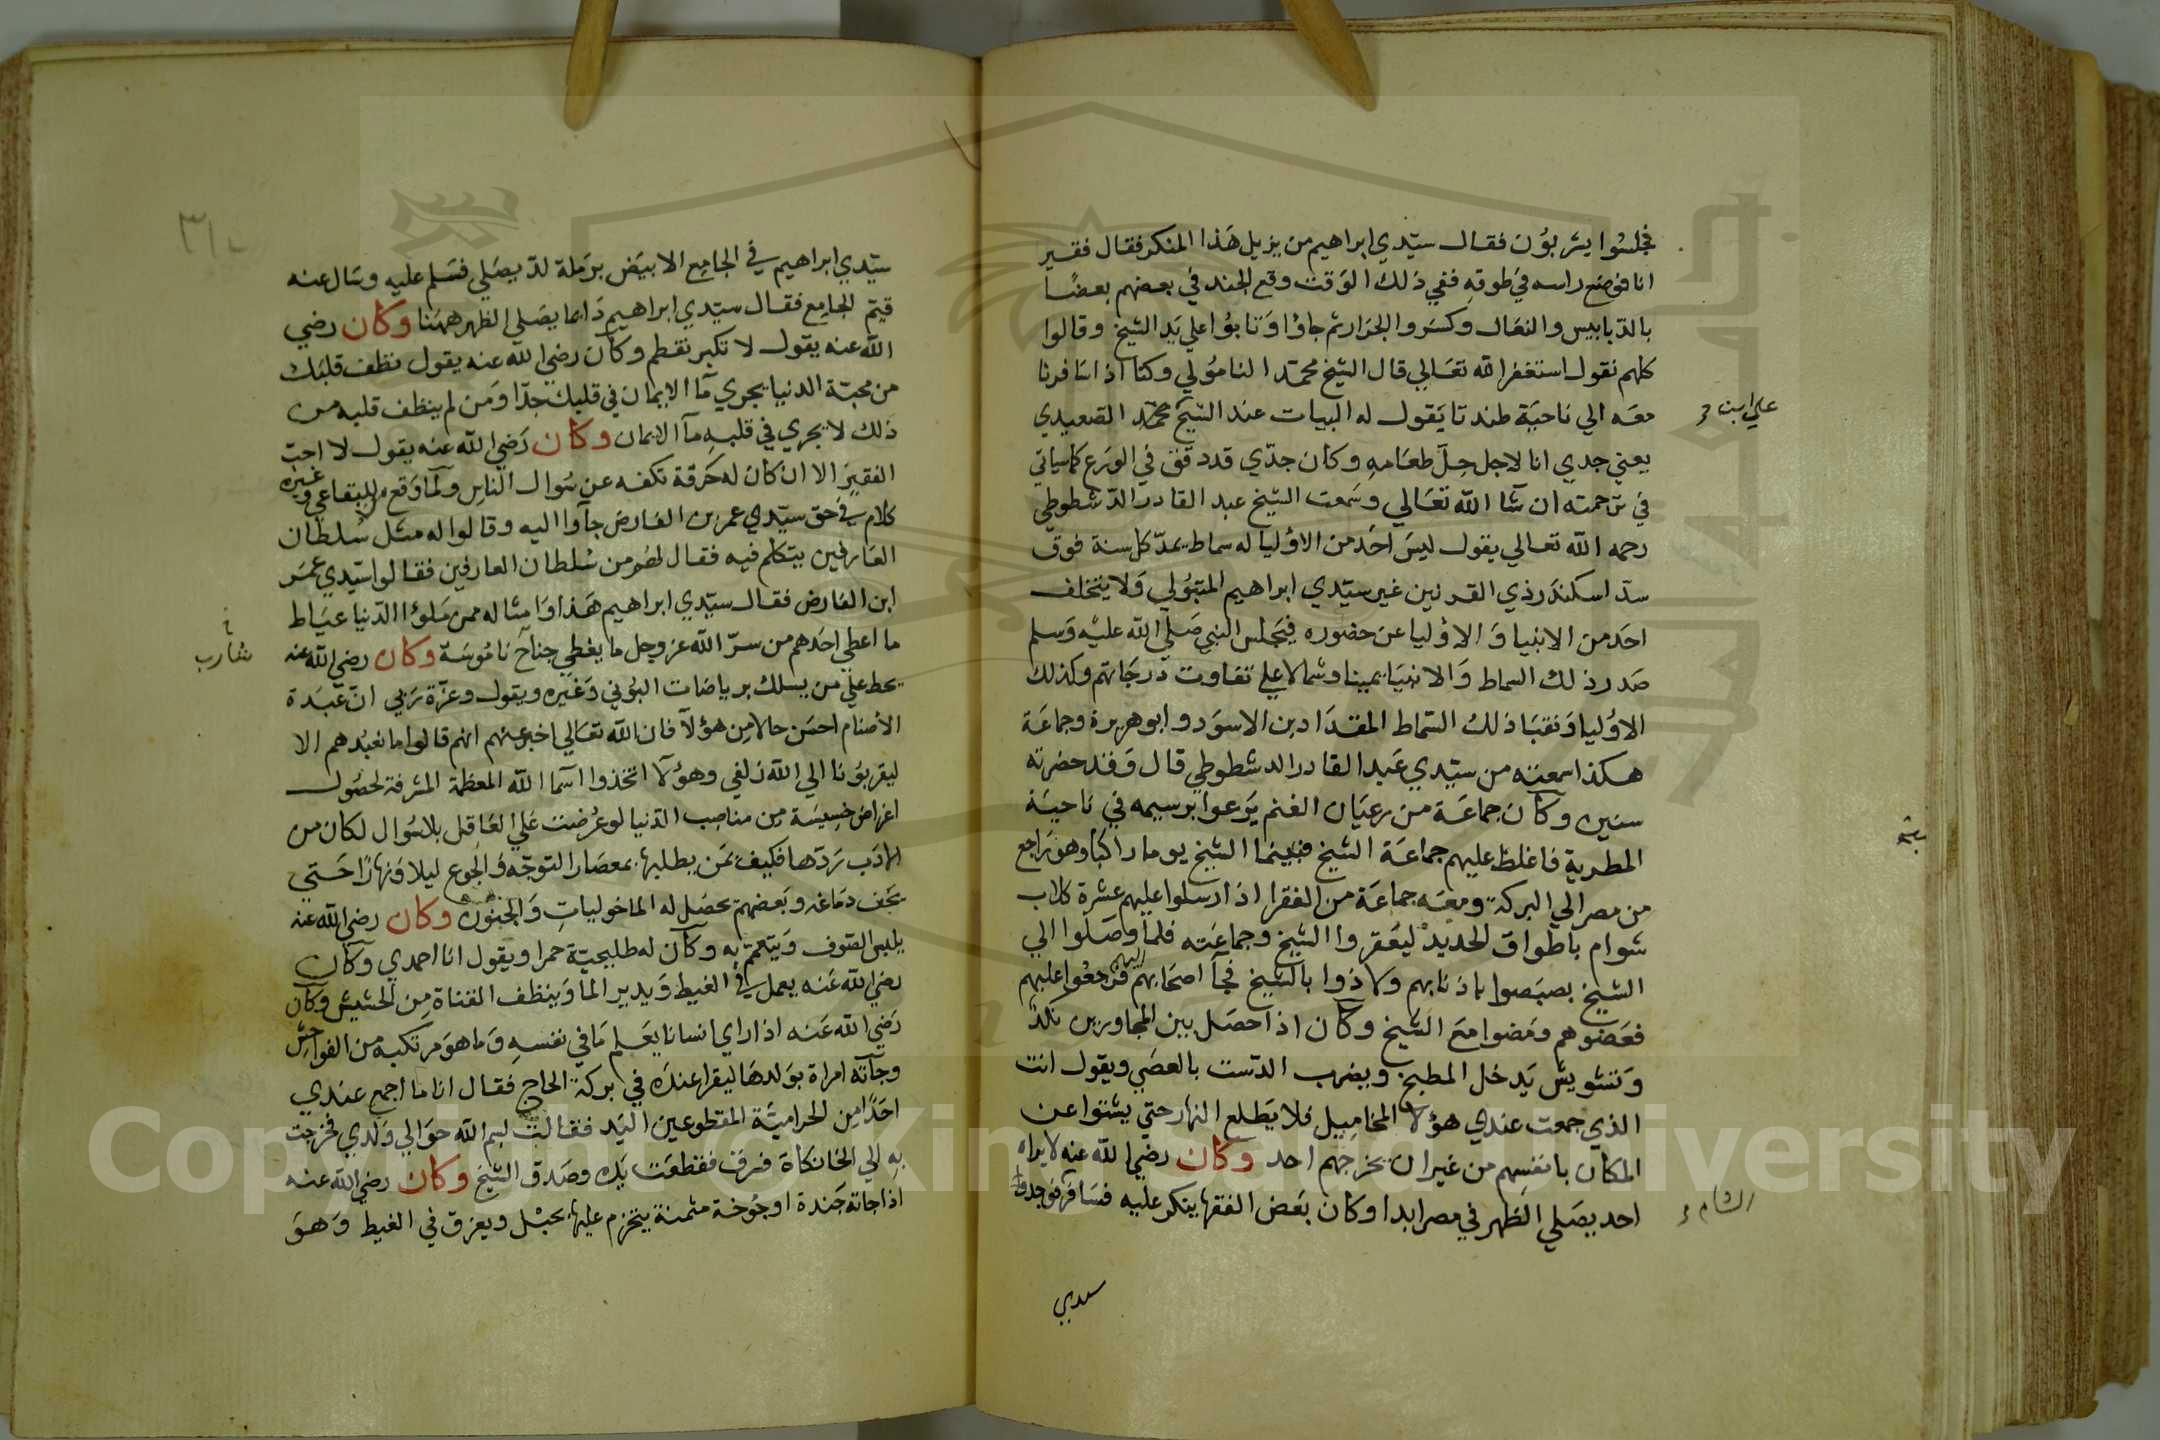 فجلسوا يشربون فقال سيدي ابراهيم من يزيل هذا المنكر فقال فقير
انا فوضع راسه في طوقه ففي ذلك الوقت وقع الجند في بعضهم بعضًا
بالدبابيس والنعال وكسروا الجرار ثم جاؤا وتابوا علي يد الشيخ وقالوا
كلهم نقول استغفر الله تعالي قال الشيخ محمد النامولي وكنا اذا سافرنا
معه الي ناحية طندتا يقول له البيات عند الشيخ محمد الصعيدي
علي ابن
يعني جدي انا لاجل حل طعامه وكان جدي قد دقق في الورع كما سياتي
في ترجمته ان شا الله تعالي وسمعت الشيخ عبد القادر الدشطوطي
رحمه الله تعالي يقول ليس احد من الاوليا له سماط يمد كل سنة فوق
سد اسكندر ذي القرنين غير سيدي ابراهيم المتبولي ولا يتخلف
احد من الانبيا والاوليا عن حضوره فيجلس النبي صلي الله عليه وسلم
صدر ذلك السماط والانبيا يمينا وشمالا علي تفاوت درجاتهم وكذلك
الاوليا ونقبا ذلك السماط المقداد بن الاسود وابو هريرة وجماعة
هكذا سمعته من سيدي عبد القادر الدشطوطي قال وقد حضرته
سنين وكان جماعة من رعيان الغنم يرعوا برسيمه في ناحية
المطرية فاغلظ عليهم جماعة الشيخ فبينما الشيخ يوما راكبا وهو راجع
من مصر الي البركة ومعه جماعة من الفقرا اذ ارسلوا عليهم عشرة كلاب
شوام باطواق الحديد ليعقروا الشيخ وجماعته فلما وصلوا الي
الشيخ بصبصوا باذنابهم ولاذوا بالشيخ فجآ اصحابهم اليهم فرجعوا عليهم
فعضوهم ومضوا مع الشيخ وكان اذا حصل بين المجاورين نكد
وتشويش يدخل المطبخ ويضرب الدست بالعصي ويقول انت
الذي جمعت عندي هؤلا المخاميل فلا يطلع النهار حتي يشتوا عن
المكان بانفسهم من غير ان يخرجهم احد وكان رضي الله عنه لا يراه
احد يصلي الظهر في مصر ابدا وكان بعض الفقها ينكر عليه فسافر فوجد
الشام
سيدي
سيدي ابراهيم في الجامع الابيض برملة لد يصلي فسلم عليه وسال عنه
قيم الجامع فقال سيدي ابراهيم دايما يصلي الظهر ههنا وكان رضي
الله عنه يقول لا تكبر تقطم وكان رضي الله عنه يقول نظف قلبك
من محبة الدنيا يجري مآ الايمان في قلبك جدا ومن لم ينظف قلبه من
ذلك لا يجري في قلبه مآ الايمان وكان رضي الله عنه يقول لا احب
الفقير الا ان كان له حرفة تكفه عن سوال الناس ولما وقع للبقاعي وغيره
كلام في حق سيدي عمر بن الفارض جآوا اليه وقالوا له مثل سلطان
العارفين يتكلم فيه فقال لهم من سلطان العارفين فقالوا سيدي عمر
ابن الفارض فقال سيدي ابراهيم هذا وامثاله ممن ملوا الدنيا عياط
ما اعطي احدهم من سر الله عز وجل ما يغطي جناح ناموسة وكان رضي الله عنه
شارب
يحط علي من يسلك برياضات البوني وغيره ويقول وعزة ربي ان عبدة
الاصنام احسن حالا من هؤلآ فان الله تعالي اخبر عنهم انهم قالوا ما نعبدهم الا
ليقربونا الي الله زلفي وهؤلآ اتخذوا اسمآ الله المعظمة المشرفة لحصول
اغراض خسيسة من مناصب الدنيا لو عرضت علي العاقل بلا سوال لكان من
الادب ردها فكيف بمن يطلبها بمعصار التوجه والجوع ليلا ونهارا حتي
يجف دماغه وبعضهم يحصل له الماخوليات والجنون وكان رضي الله عنه
يلبس الصوف ويتعمم به وكان له طليحية حمرا ويقول انا احمدي وكان
رضي الله عنه يعمل في الغيط ويدير الما وينظف القناة من الحشيش وكان
رضي الله عنه اذا راي انسانا يعلم ما في نفسه وما هو مرتكبه من الفواحش
وجآته امراة بولدها ليقرا عنده في بركة الحاج فقال انا ما اجمع عندي
احدًا من الحرامية المقطوعين اليد فقالت بسم الله حوالي ولدي فخرجت
به الي الخانكاة فسرق فقطعت يده وصدق الشيخ وكان رضي الله عنه
اذا جاته جندة او جوخة مثمنة يتحزم عليها بحبل ويعزق في الغيط وهو
Copyright © King Saud University